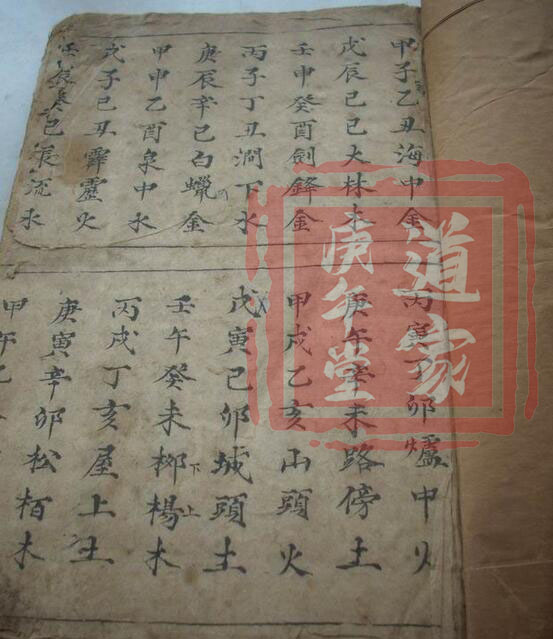 甲子乙丑海中金
丙寅丁卯爐中火
戊辰己巳大林木
庚午辛未路傍土
壬申癸酉劍鋒金
甲戌乙亥山頭火
丙子丁丑澗下水
戊寅己卯城頭土
庚辰辛巳白蠟金
壬午癸未柳楊木
下上
甲申乙酉泉中水
丙戌丁亥屋上土
戊子己丑霹靂火
庚寅辛卯松栢木
壬辰癸巳長流水
甲午乙
道家
庚午堂